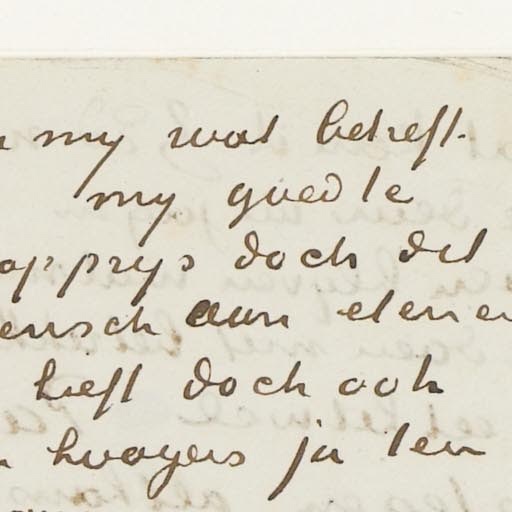 my wat betreft.
my goed te
opprys doch det
ensch aan elen
heeft doch ook
hvagers ja ten